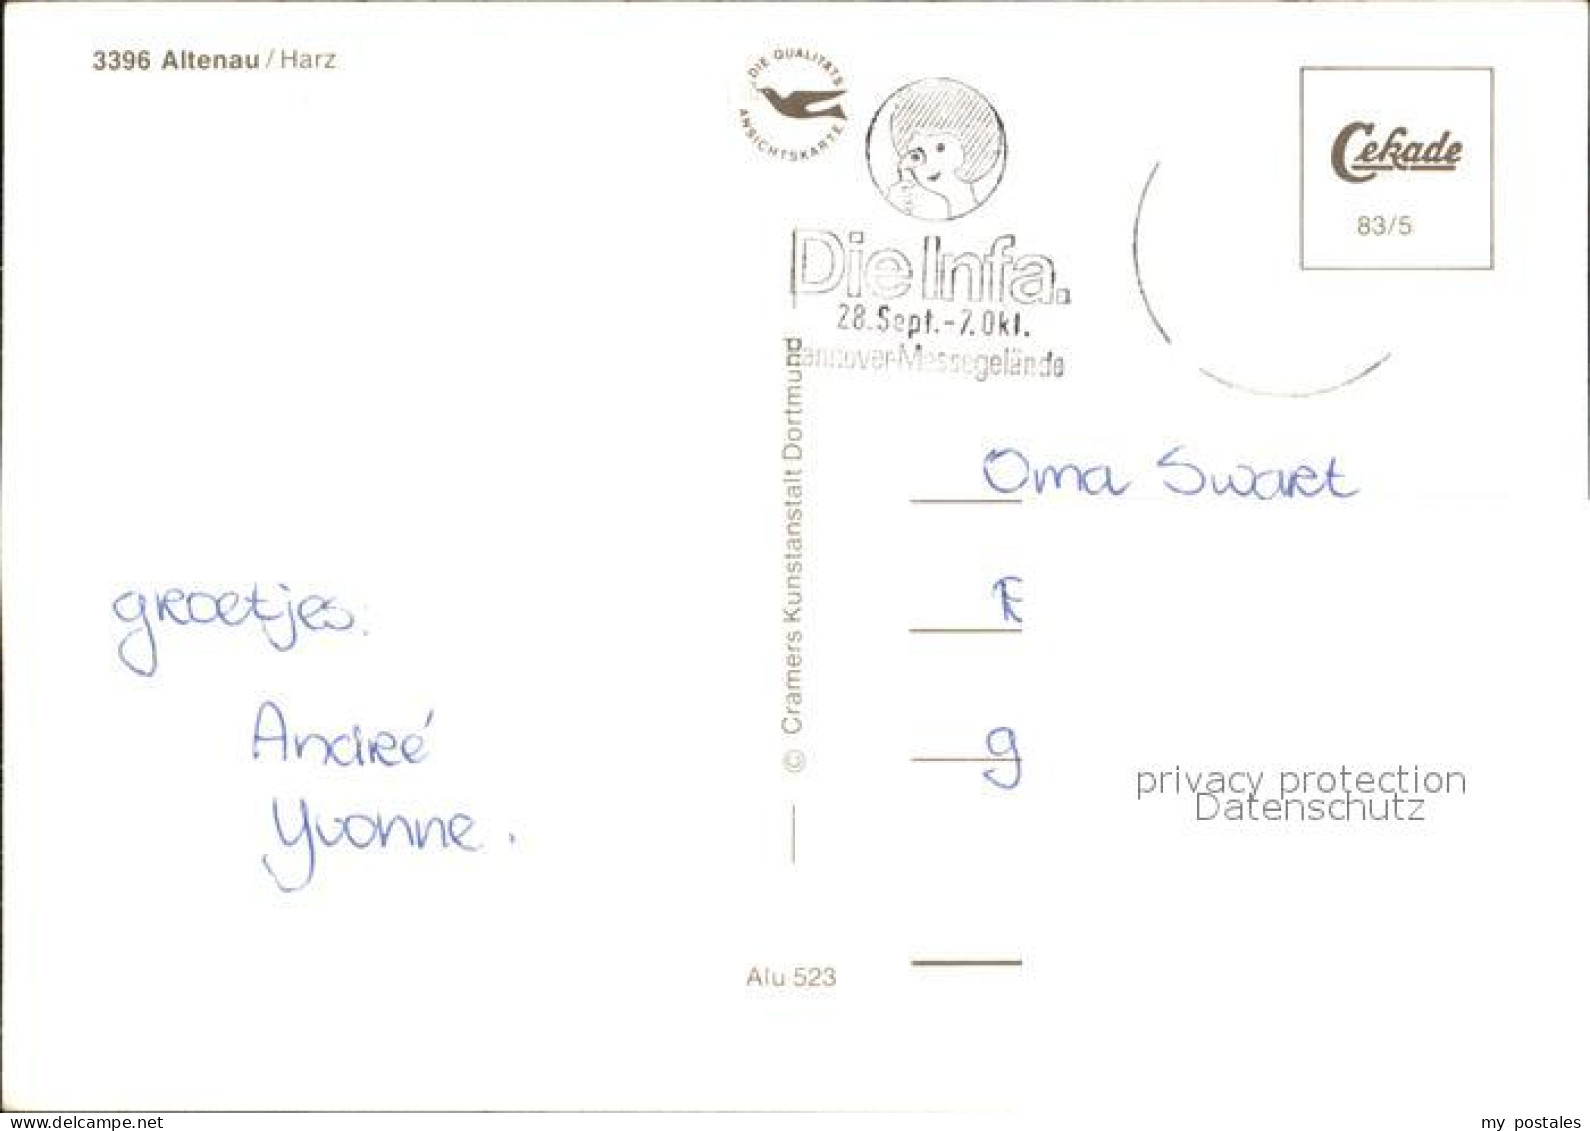 3396 Altenau / Harz
DIE QUALITÄTS
ANSICHTSKARTE
Cekade
83/5
Die Infa.
28. Sept. - 7. Okt.
Hannover-Messegelände
© Cramers Kunstanstalt Dortmund
Oma Swart
groetjes.
André
Yvonne.
g
privacy protection
Datenschutz
Alu 523
www.delcampe.net
my_postales